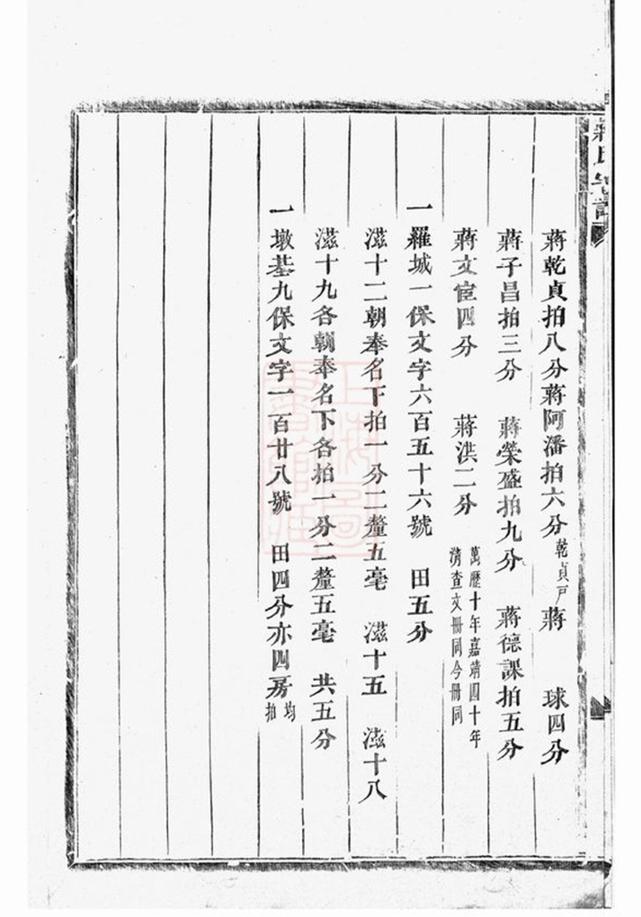 蔣乾貞拍八分蔣阿潘拍六分乾貞戸蔣　球四分
蔣子昌拍三分　蔣榮盛拍九分　蔣德課拍五分
蔣文宦四分　蔣洪二分　萬歷十年嘉靖四十年
清查文冊同今冊同
一羅城一保文字六百五十六號　田五分
滋十二朝奉名下拍一分二釐五毫　滋十五　滋十八
滋十九各朝奉名下各拍一分二釐五毫　共五分
一墩基九保文字一百廿八號　田四分亦四房均
拍